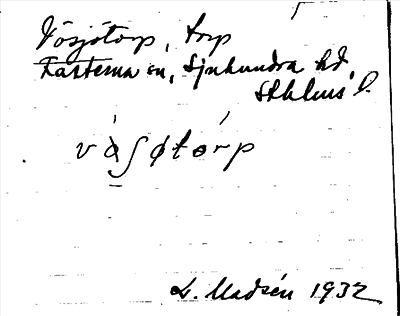 Vösjötorp, torp
Fasterna sn, Sjuhundra hd,
Sthlms l.
våʃøtórp
L. Madsén 1932